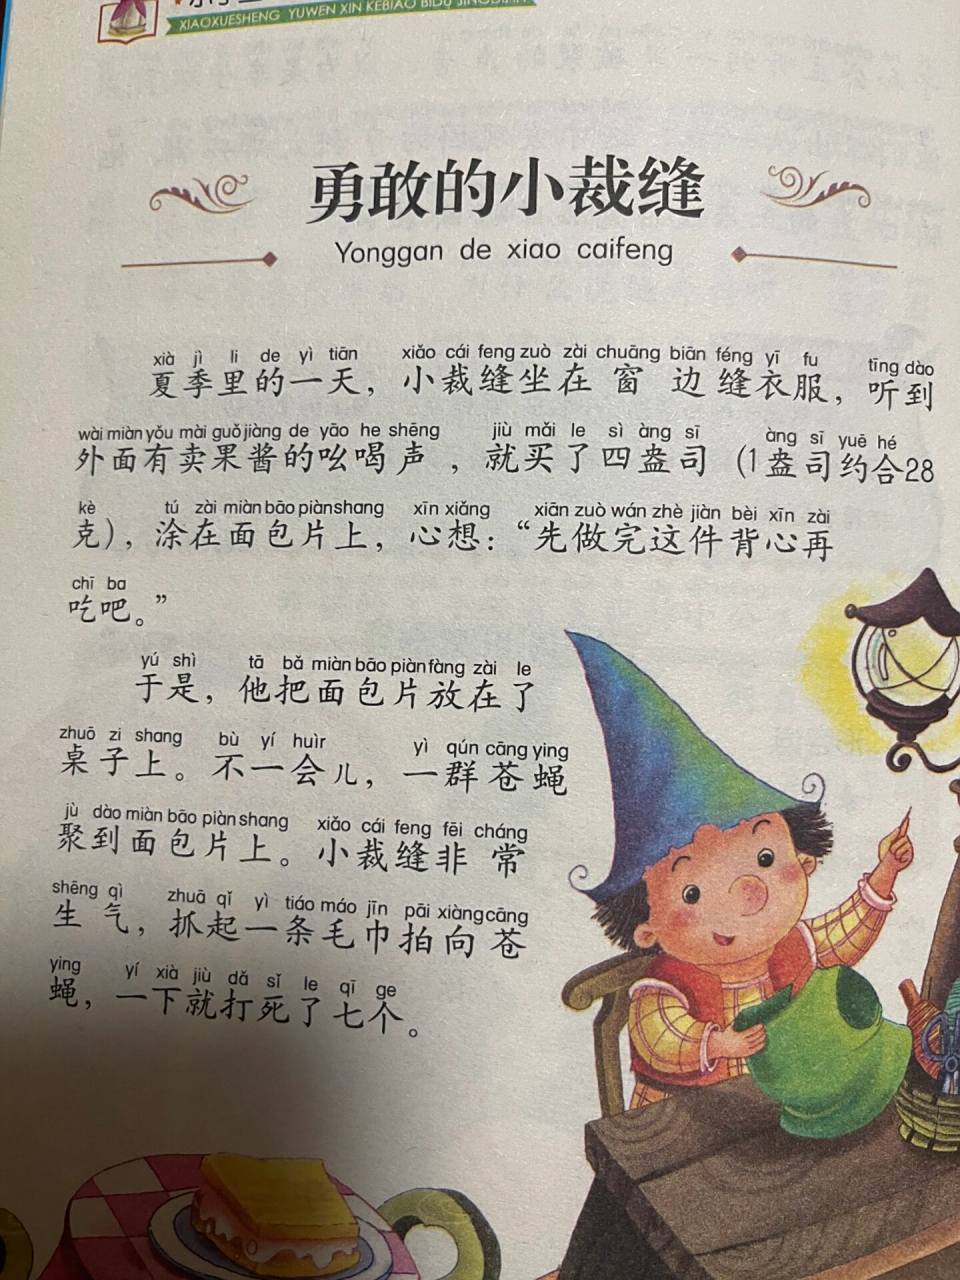 XIAOXUESHENG YUWEN XIN KEBIAO BIDU JINGDIAN
勇敢的小裁缝
Yonggan de xiao caifeng
xià jì li de yì tiān xiǎo cái feng zuò zài chuāng biān féng yī fu tīng dào
夏季里的一天，小裁缝坐在窗边缝衣服，听到
wài miàn yǒu mài guǒ jiàng de yāo he shēng jiù mǎi le sì àng sī àng sī yuē hé
外面有卖果酱的吆喝声，就买了四盎司（1盎司约合28
kè tú zài miàn bāo piàn shang xīn xiǎng xiān zuò wán zhè jiàn bèi xīn zài
克），涂在面包片上，心想：“先做完这件背心再
chī ba
吃吧。”
yú shì tā bǎ miàn bāo piàn fàng zài le
于是，他把面包片放在了
zhuō zi shang bù yí huìr yì qún cāng ying
桌子上。不一会儿，一群苍蝇
jù dào miàn bāo piàn shang xiǎo cái feng fēi cháng
聚到面包片上。小裁缝非常
shēng qì zhuā qǐ yì tiáo máo jīn pāi xiàng cāng
生气，抓起一条毛巾拍向苍
ying yí xià jiù dǎ sǐ le qī ge
蝇，一下就打死了七个。